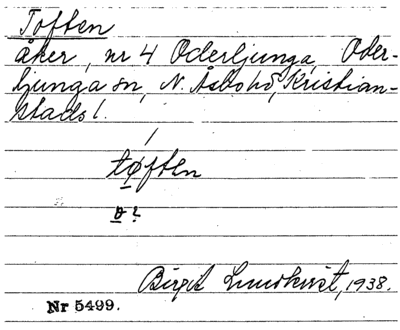 Toften
åker, nr 4 Oderljunga, Oder-
ljunga sn, N. Åsbo hd, Kristian-
stads l.
tøften
ø ?
Birgit Lundkvist, 1938.
Nr 5499.